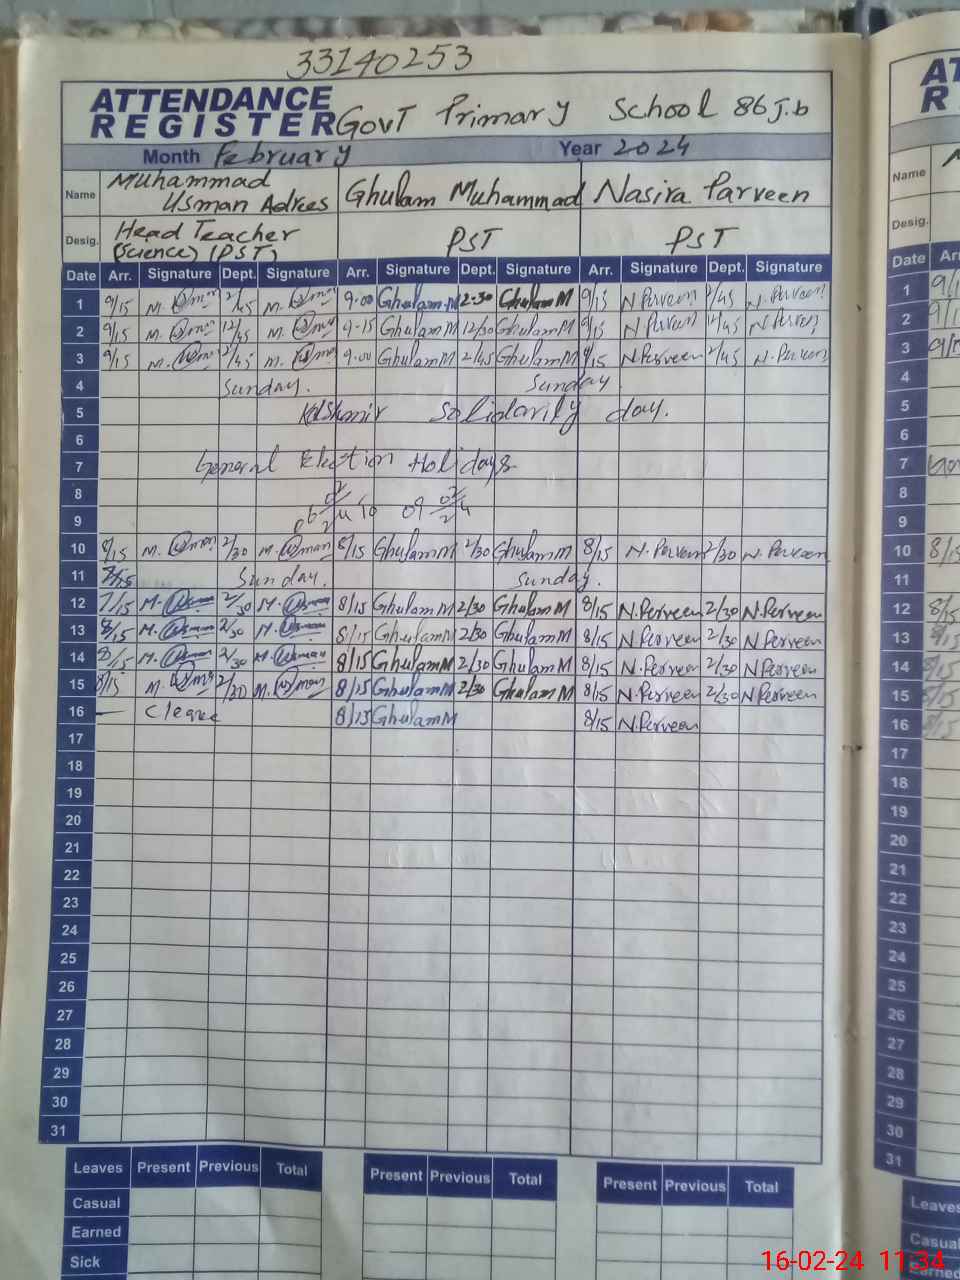 33140253
ATTENDANCE
REGISTER Govt Primary School 86 J.b
Month February Year 2024
Name Muhammad Usman Adrees Ghulam Muhammad Nasira Parveen
Desig. Head Teacher (Science) (PST) PST PST
Date Arr. Signature Dept. Signature Arr. Signature Dept. Signature Arr. Signature Dept. Signature
1 9/15 M. Usman 2/45 M. Usman 9-00 Ghulam M 2-30 Ghulam M 9/15 N Perveen 2/45 N. Perveen
2 9/15 M. Usman 12/45 M. Usman 9-15 Ghulam M 12/30 Ghulam M 9/15 N Perveen 12/45 N. Perveen
3 9/15 M. Usman 2/45 M. Usman 9.00 Ghulam M 2/45 Ghulam M 9/15 N. Perveen 2/45 N. Perveen
4 Sunday. Sunday.
5 Kashmir Solidarity day.
6
7 General Election Holidays
8
9 06 02/24 to 09 02/24
10 8/15 M. Usman 2/30 M. Usman 8/15 Ghulam M 2/30 Ghulam M 8/15 N. Perveen 2/30 N. Perveen
11 Sunday. Sunday.
12 7/15 M. Usman 2/30 M. Usman 8/15 Ghulam M 2/30 Ghulam M 8/15 N. Perveen 2/30 N. Perveen
13 8/15 M. Usman 2/30 M. Usman 8/15 Ghulam M 2/30 Ghulam M 8/15 N. Perveen 2/30 N. Perveen
14 8/15 M. Usman 2/30 M. Usman 8/15 Ghulam M 2/30 Ghulam M 8/15 N. Perveen 2/30 N. Perveen
15 8/15 M. Usman 2/30 M. Usman 8/15 Ghulam M 2/30 Ghulam M 8/15 N. Perveen 2/30 N. Perveen
16 8/15 Ghulam M 8/15 N. Perveen
17
18
19
20
21
22
23
24
25
26
27
28
29
30
31
Leaves Present Previous Total Present Previous Total Present Previous Total
Casual
Earned
Sick
Name
Desig.
Date
1
2
3
4
5
6
7
8
9
10 8/15
11
12 8/15
13 8/15
14 8/15
15 8/15
16 8/15
17
18
19
20
21
22
23
24
25
26
27
28
29
30
31
Leaves
Casual
Earned
16-02-24 11:34